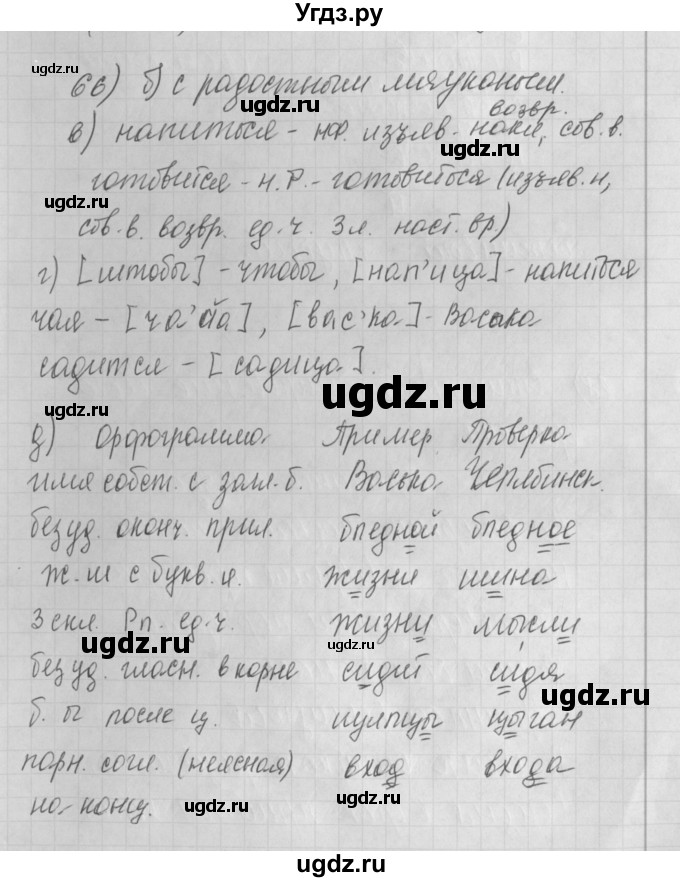 Угдз.ру
66) б) с радостным мяуканьем.
возвр.
в) напиться - нф. изъяв. накл, сов. в.
готовится - н.Р. - готовиться (изъяв. н,
сов. в. возвр. ед. ч. 3 л. наст. вр)
г) [штобы] - чтобы, [нап'ица] - напиться
чая - [ча'й'а], [вас'ка] - Васька
садится - [садица].
д) Орфограмма Пример Проверка
имя собст. с загл. б. Васька Челябинск.
безуд. оконч. прил. бледной бледное
ж. ш с букв. и. жизни шина
3 скл. Рп. ед. ч. жизни мысли
безуд. гласн. в корне сидит сидя
б. ы после ц. улицы цыган
парн. согл. (неясная) вход входа
на конц.
ugdz.ru
ugdz.ru
ugdz.ru
ugdz.ru
ugdz.ru
ugdz.ru
ugdz.ru
ugdz.ru
ugdz.ru
ugdz.ru
ugdz.ru
ugdz.ru
ugdz.ru